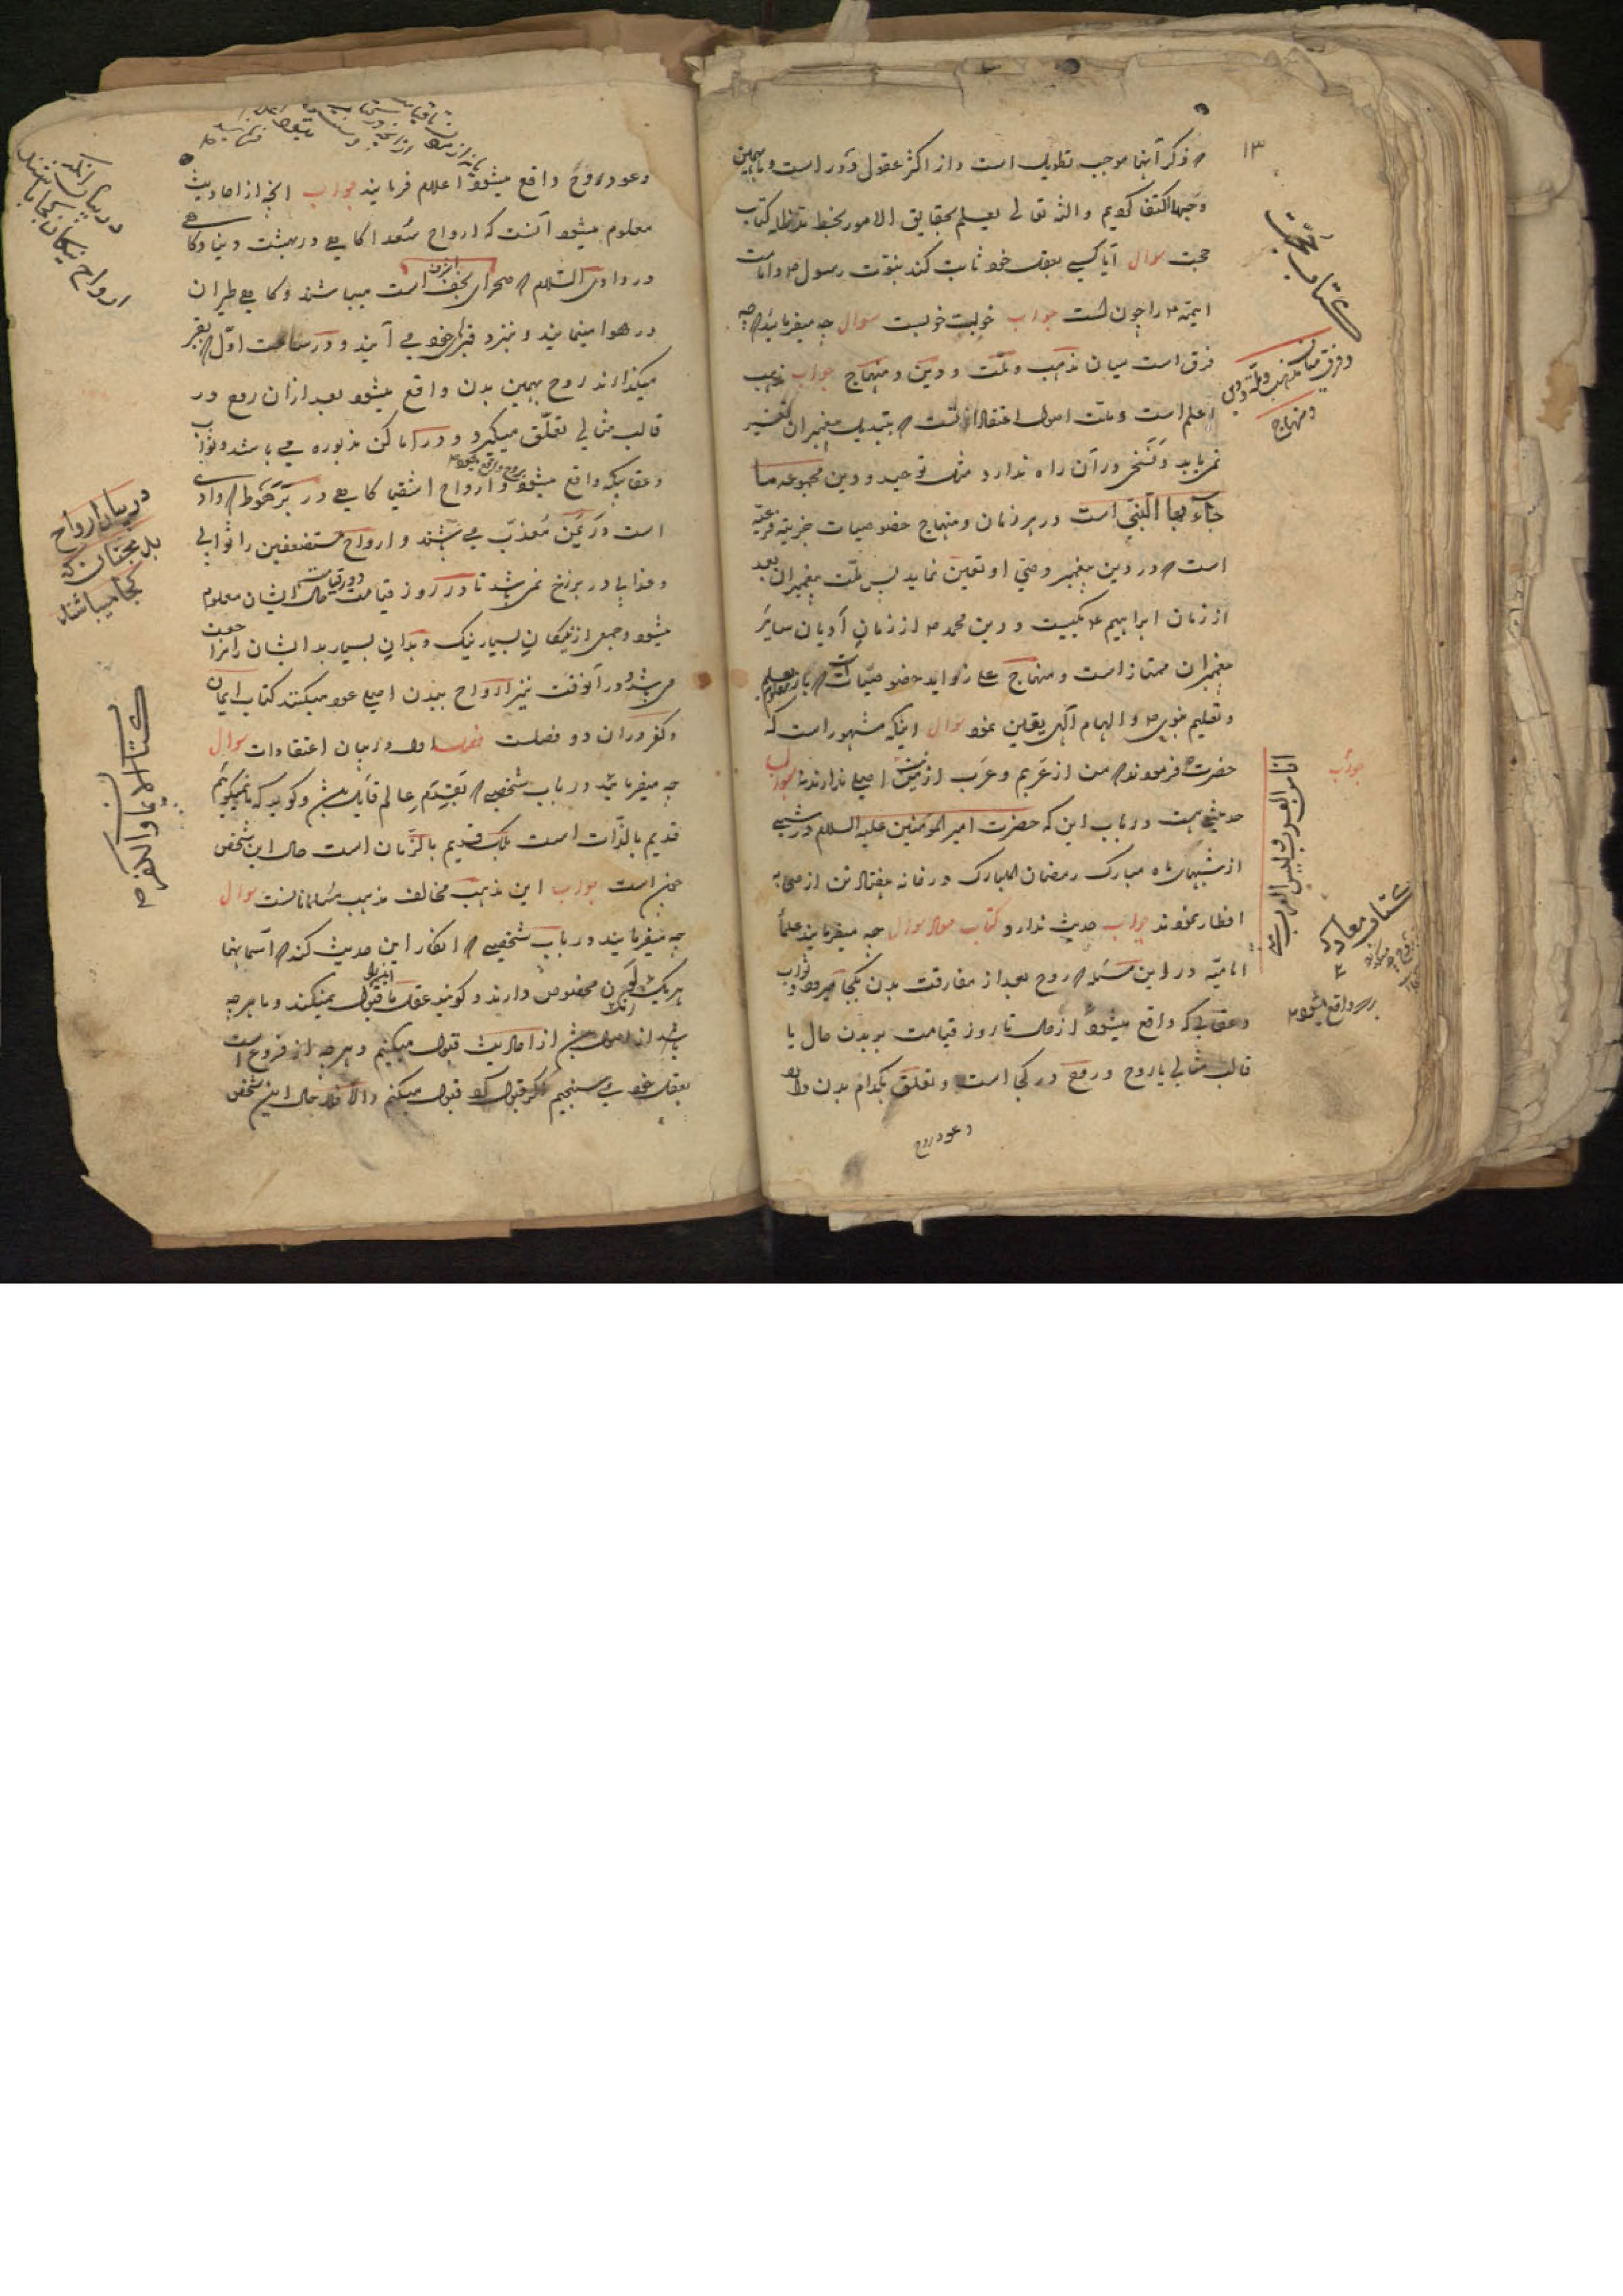 ۱۳
که ذکر آنها موجب تطویل است و از اکثر عقول دور است و بهمین
وجهها اکتفا کردیم والله تعالی یعلم بحقایق الامور بخط مدظله کتاب
حجت سوال آیا کسی بعقل خود ثابت کند نبوت رسول ص و امامت
ایمه ع را چون است جواب خوبست خوبست سوال چه میفرمایند که چه
فرق است میان مذهب و ملت و دین و منهاج جواب مذهب
اعلم است و ملت اصول اعتقادات است که بتبدیل پیغمبران تغییر
نمی یابد و نسخ در آن راه ندارد مثل توحید و دین مجموعه ما
جاء بها النبی است در هر زمان و منهاج خصوصیات جزییه فرعیه
است که در دین پیغمبر وصی او تعیین نماید پس ملت پیغمبران بعد
از زمان ابراهیم ع یکیست و دین محمد ص از زمان ادیان سایر
پیغمبران ممتاز است و منهاج علی زواید خصوصیات است که
و تعلیم نبوی ص و الهام آلهی یقین نمود سوال اینکه مشهور است که
حضرت فرمودند که من از عربم و عرب از من است اصلی ندارند سوال
حدیثی هست در باب این که حضرت امیر المومنین علیه السلام در شبی
از شبهای ماه مبارک رمضان المبارک در خانه هفتاد تن از صحابه
افطار نمودند جواب حدیث ندارد کتاب معاد سوال چه میفرمایند علماً
امامیه در این مسئله که روح بعد از مفارقت بدن بکجا میرود و ثواب
و عقابی که واقع میشود از حال تا روز قیامت بر بدن حال یا
قالب مثالی یا روح و روح در کجا است و تعلق بکدام بدن دارد
وعود روح
کتاب حجت
و فرق میان مذهب و ملة و دین
و منهاج
جواب
انا من العرب و لیس العرب منی
کتاب معاد که
وعود روح واقع میشود اعلام فرمایند جواب آنچه از احادیث
معلوم میشود آنست که ارواح سعدا گاهی در بهشت دنیا و گاهی
در وادی السلام که صحرای نجف اشرف است میباشند و گاهی طیران
در هوا مینمایند و بنزد قبرهای خود می آیند و در ساعت اول که بقبر
میگذارند روح بهمین بدن واقع میشود بعد از آن روح در
قالب مثالی تعلق میگیرد و در اماکن مذبوره می باشد و ثواب
و عقابیکه واقع میشود بروح واقع میشود و ارواح اشقیا گاهی در برهوت که وادی
است در یمن معذب می باشند و ارواح مستضعفین را ثوابی
و عذابی در برزخ نمی باشد تا در روز قیامت حال ایشان معلوم
میشود و جمعی از نیکان بسیار نیک و بدان بسیار بد ایشان را رجعت
می باشد و در آنوقت نیز ارواح ببدن اصلی عود میکنند کتاب ایمان
و کفر و در آن دو فصلست فصل اول در بیان اعتقادات سوال
چه میفرمایند در باب شخصی که بقدم عالم قایل باشد و گوید که ما نمیگوییم
قدیم بالذات است بلکه قدیم بالزمان است حال این شخص
چون است جواب این مذهب مخالف مذهب مسلمانانست سوال
چه میفرمایند در باب شخصی که انکار این حدیث کند که آسمانها
هر یک لون مخصوص دارند و گویند عقل ما قبول نمیکند و ما هر چه
باشد از اصول دین از احادیث قبول میکنیم و هر چه از فروع است
بعقل خود می سنجیم اگر قبول کرد قبول میکنیم و الا فلا حال این شخص
در بیان آنکه
ارواح نیکان بکجا باشند
در بیان ارواح
بدبختان که
کجا میباشند
کتاب الایمان و الکفر